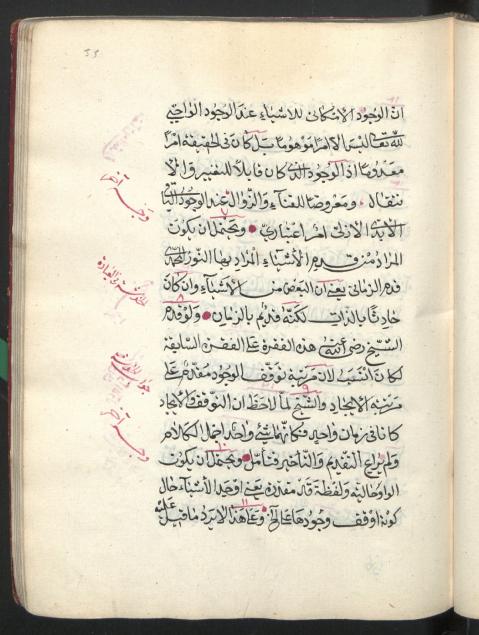 ان الوجود الامكانى للاشياء عند الوجود الواجبى
لله تعالى ليس الا امرا موهوما بل كان فى الحقيقة امرا
معدوما اذ الوجود الذى كان قابلا للتغيير والا
نتقال ومعروضا للفناء والزوال عند الوجود
الابدى الازلى امر اعتبارى ويحتمل ان يكون
المراد من قدم الأشياء المراد بها النور
قدم الزمانى يعنى ان البعض من الاشياء وان كان
حادثا بالذات لكنه قديم بالزمان ولو قدم
الشيخ رضى الله عنه هذه الفقرة على الفقرة السابقة
لكان انسب لان مرتبة توقف الوجود مقدم على
مرتبة الايجاد والشيخ لما لاحظ ان التوقف والايجاد
كانا فى زمان واحد فكانهما شئ واحد اجمل الكلام
ولم يراع التقديم والتأخير فتأمل ويحتمل ان يكون
الواو حالية ولفظة قد مقدرة يعنى اوجد الأشياء حال
كونه اوقف وجودها على الخ وعلى هذا لا يرد ما قيل عليه
وجه آخر
وجه آخر